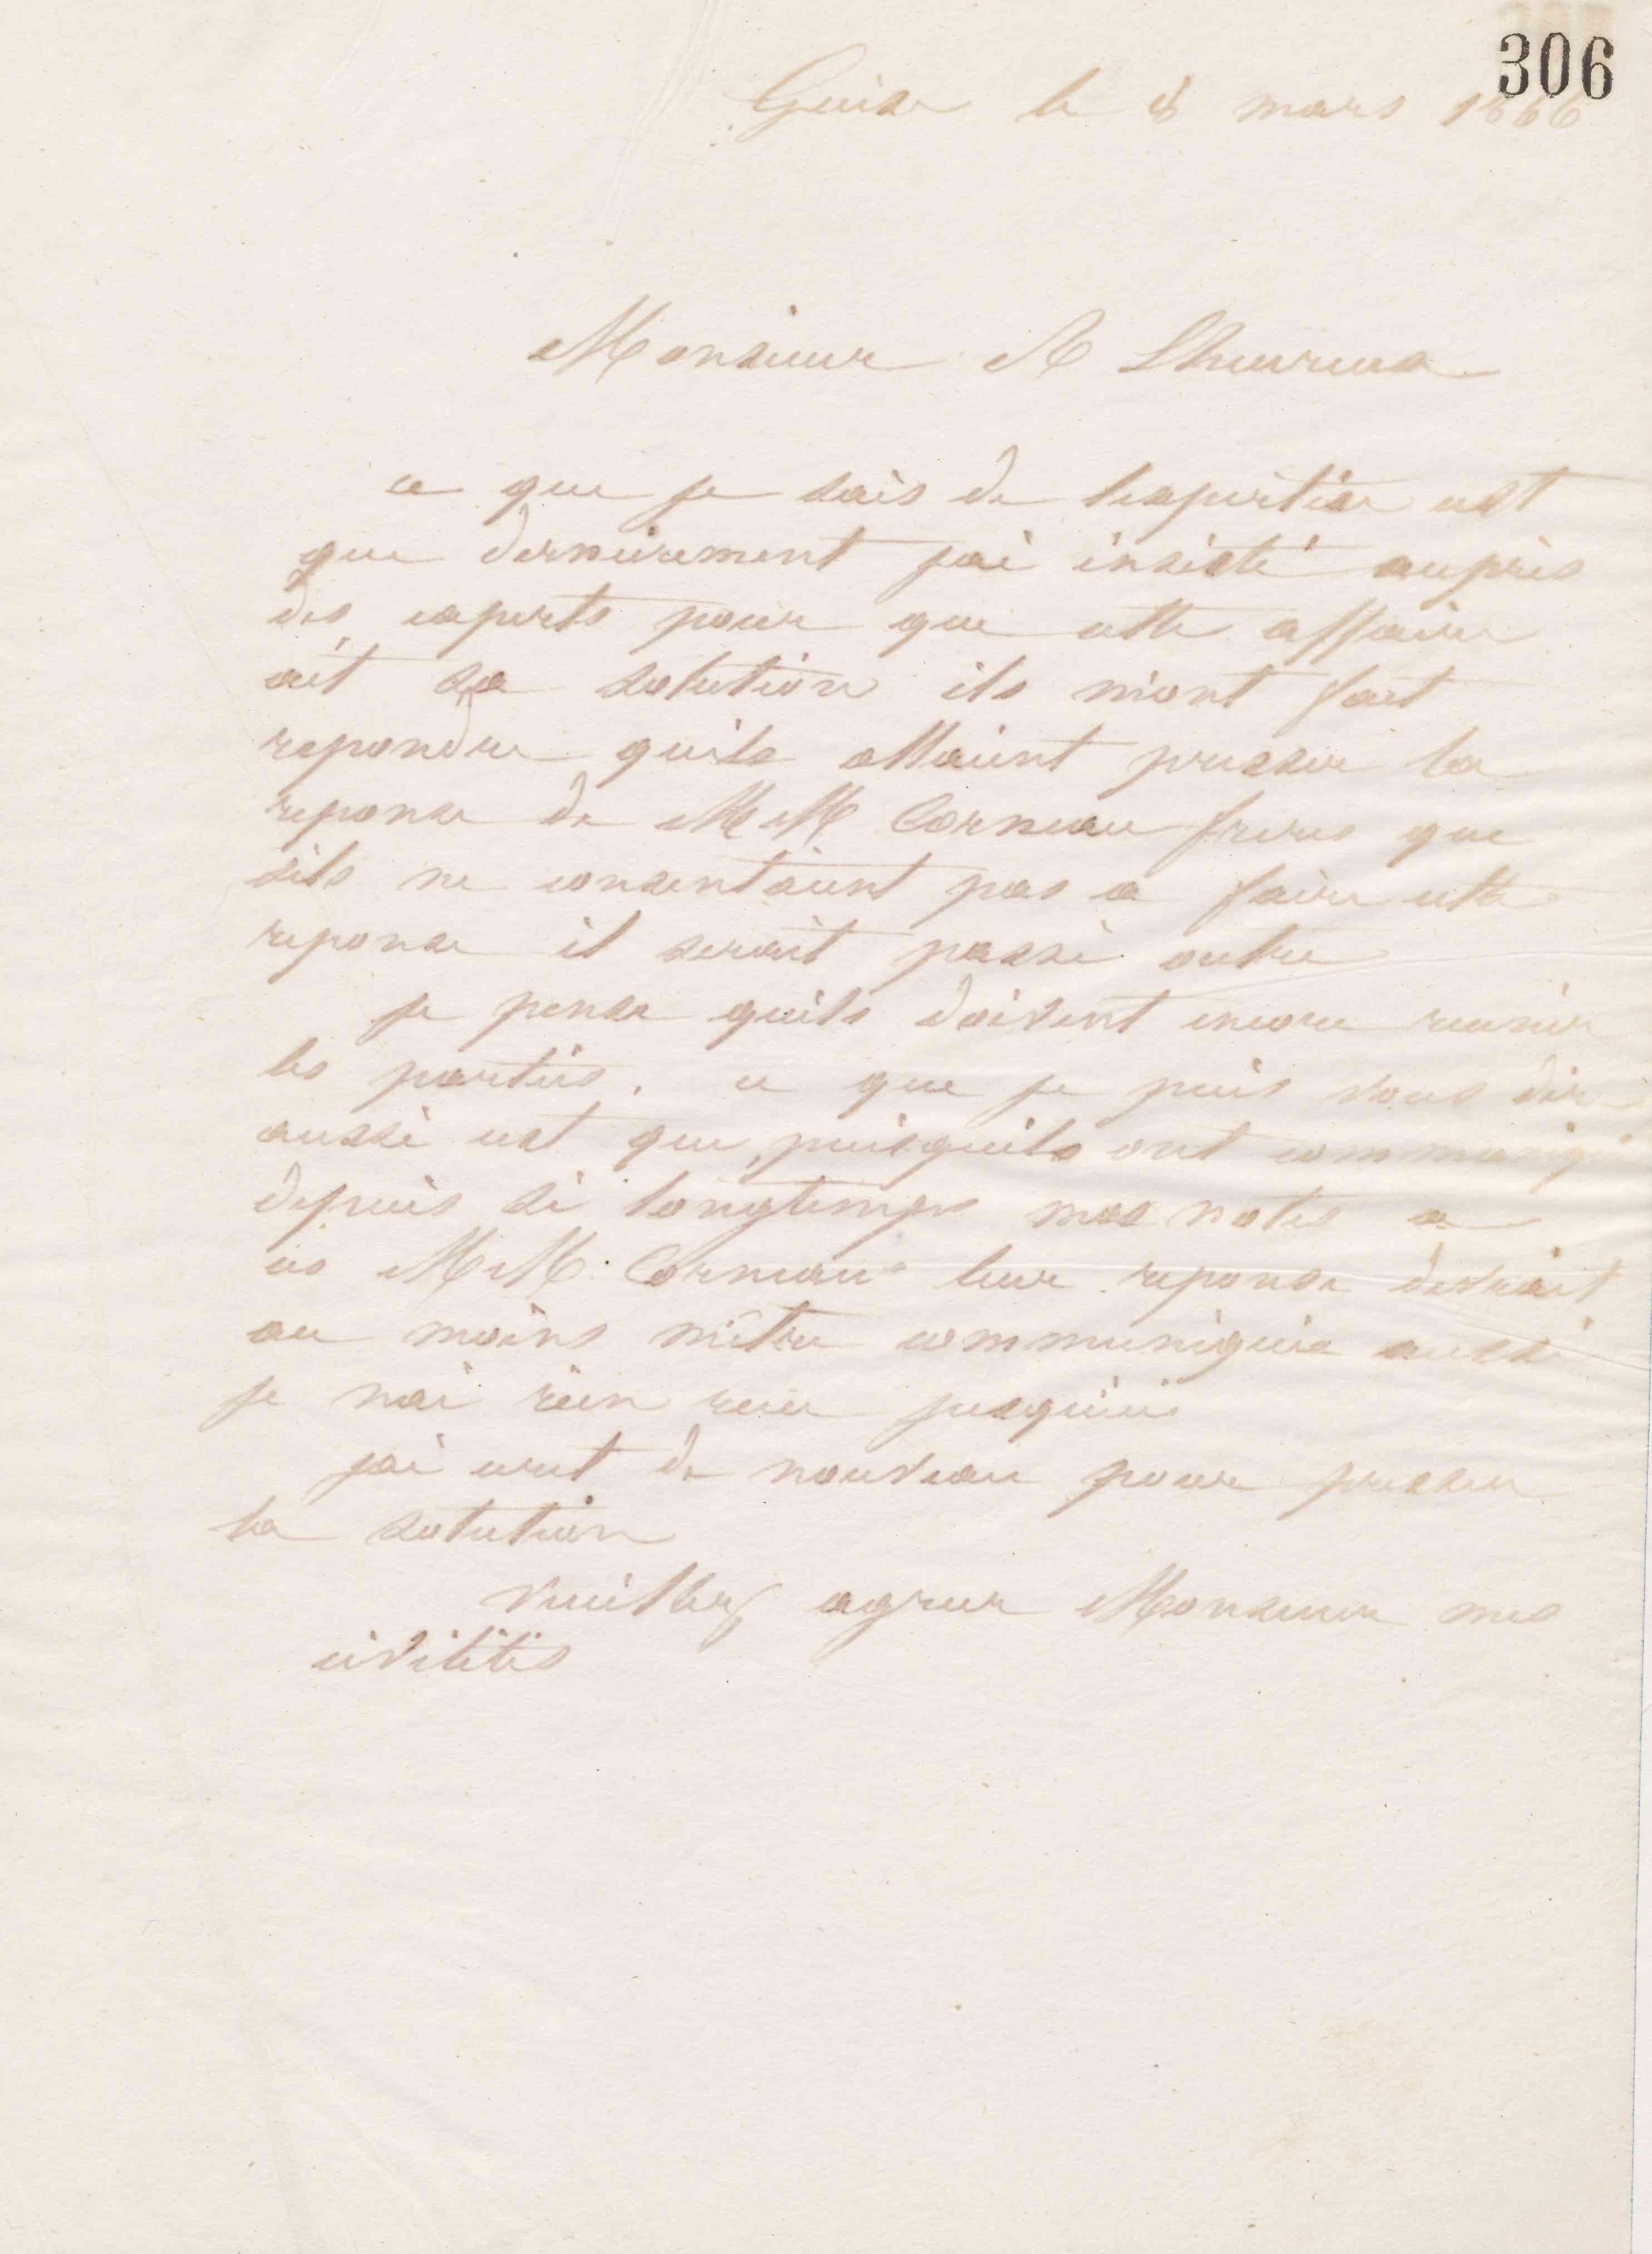 306
Guise le 8 mars 1866
Monsieur A Lheureux
ce que je sais de lexpertise est
que dernièrement jai insisté auprès
des experts pour que cette affaire
ait sa solution ils m'ont fait
repondre quils allaient presser la
reponse de MM Corneau freres que
sils ne consentaient pas a faire cette
reponse il serait passé outre
je pense quils doivent encore reunir
les parties. ce que je puis vous dire
aussi est que, puisquils ont communiqué
depuis si longtemps mes notes a
ces MM. Corneau leur reponse devrait
au moins m'être communiquée aussi
je nai rien recu jusquici
jai ecrit de nouveau pour presser
la solution
veuillez agreer Monsieur mes
civilités